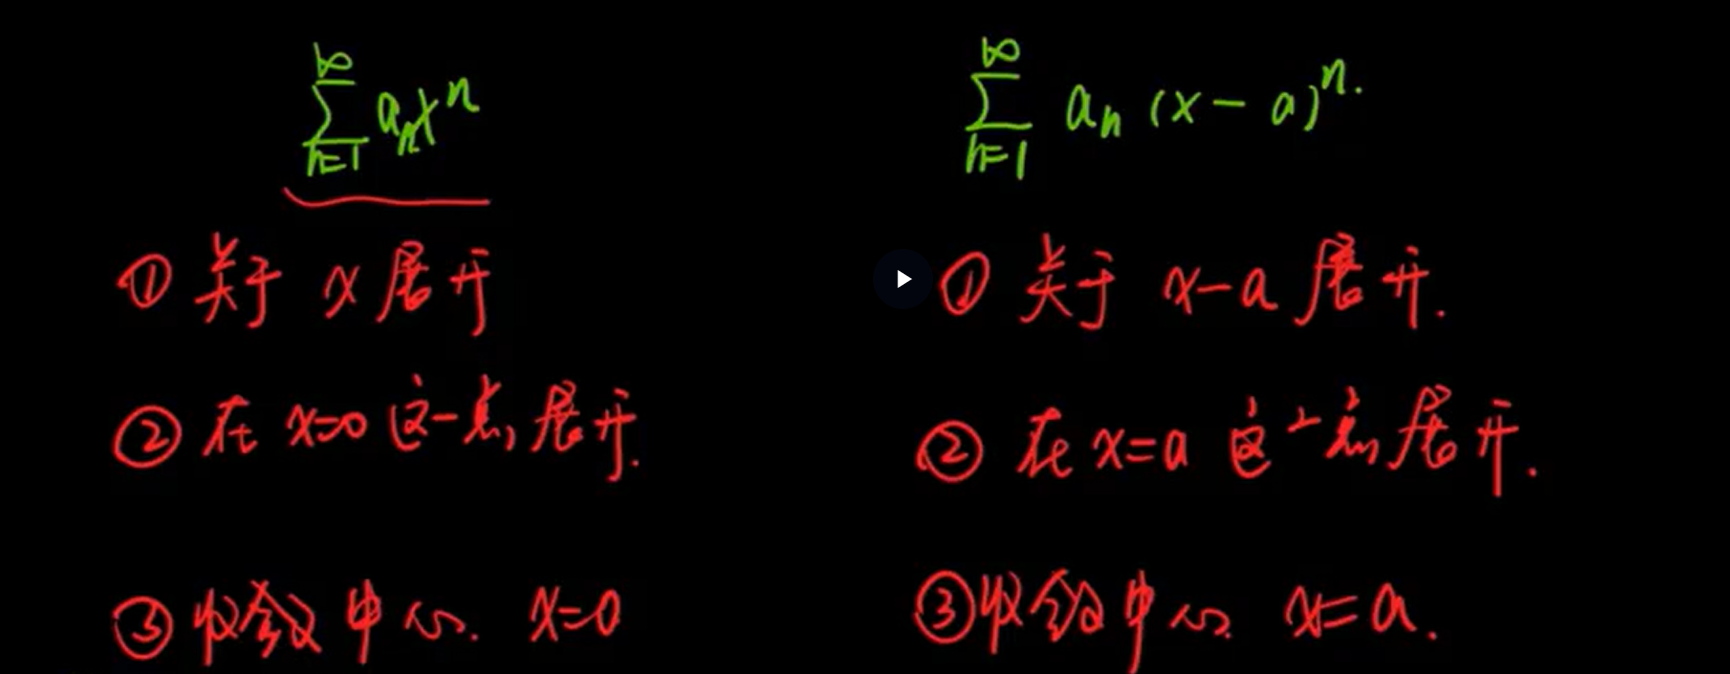 ∑_{n=1}^{∞} aₙxⁿ
① 关于 x 展开
② 在 x=0 这一点展开.
③ 收敛中心. x=0
∑_{n=1}^{∞} aₙ(x-a)ⁿ.
① 关于 x-a 展开.
② 在 x=a 这一点展开.
③ 收敛中心 x=a.